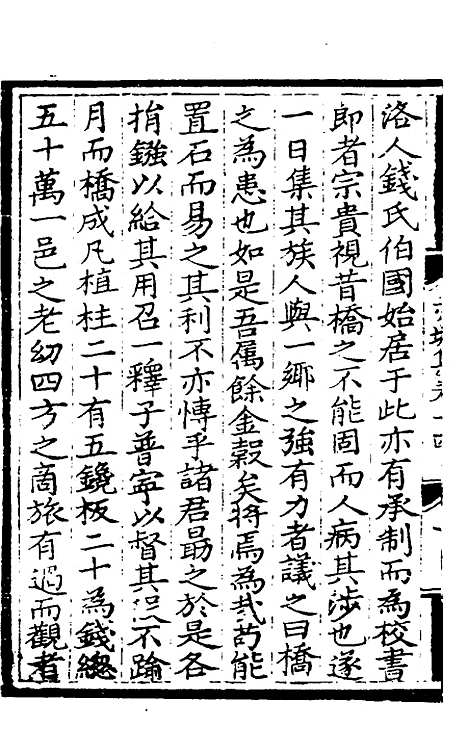 洛人錢氏伯國始居于此亦有承制而為校書
郎者宗貴視昔橋之不能固而人病其涉也遂
一日集其族人與一鄉之強有力者議之曰橋
之為患也如是吾屬餘金穀矣將焉為哉苟能
置石而易之其利不亦博乎諸君勗之於是各
捐鏹以給其用召一釋子普寧以督其不踰
月而橋成凡植柱二十有五鑱板二十為錢緫
五十萬一邑之老幼四方之商旅有過而觀者